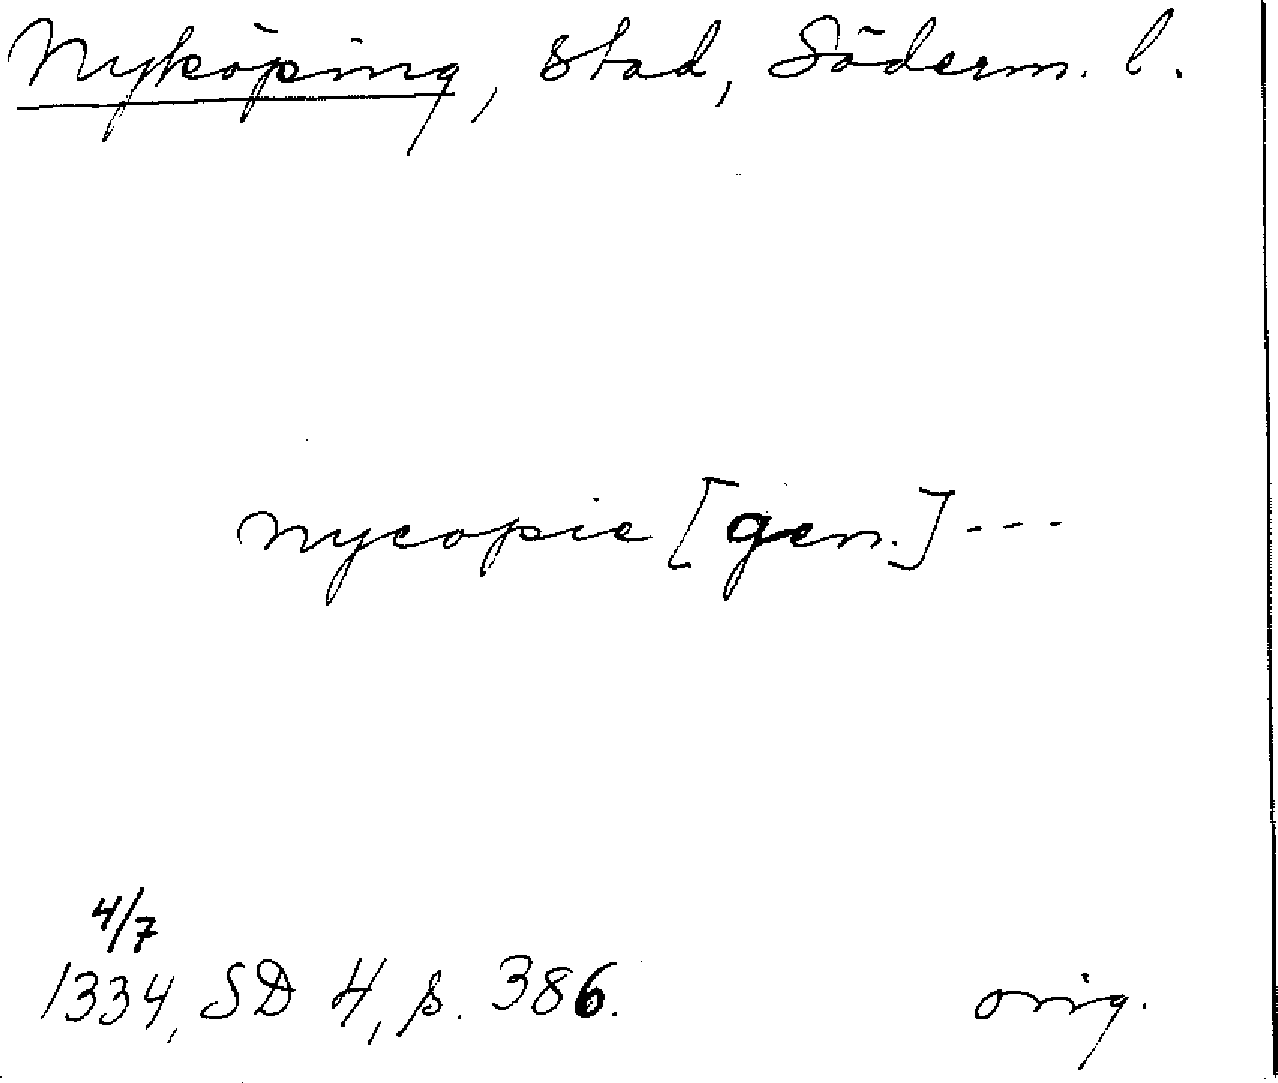 Nyköping, stad, Söderm. l.
nycopie [gen.] ---
4/7
1334, SD 4, p. 386.
orig.